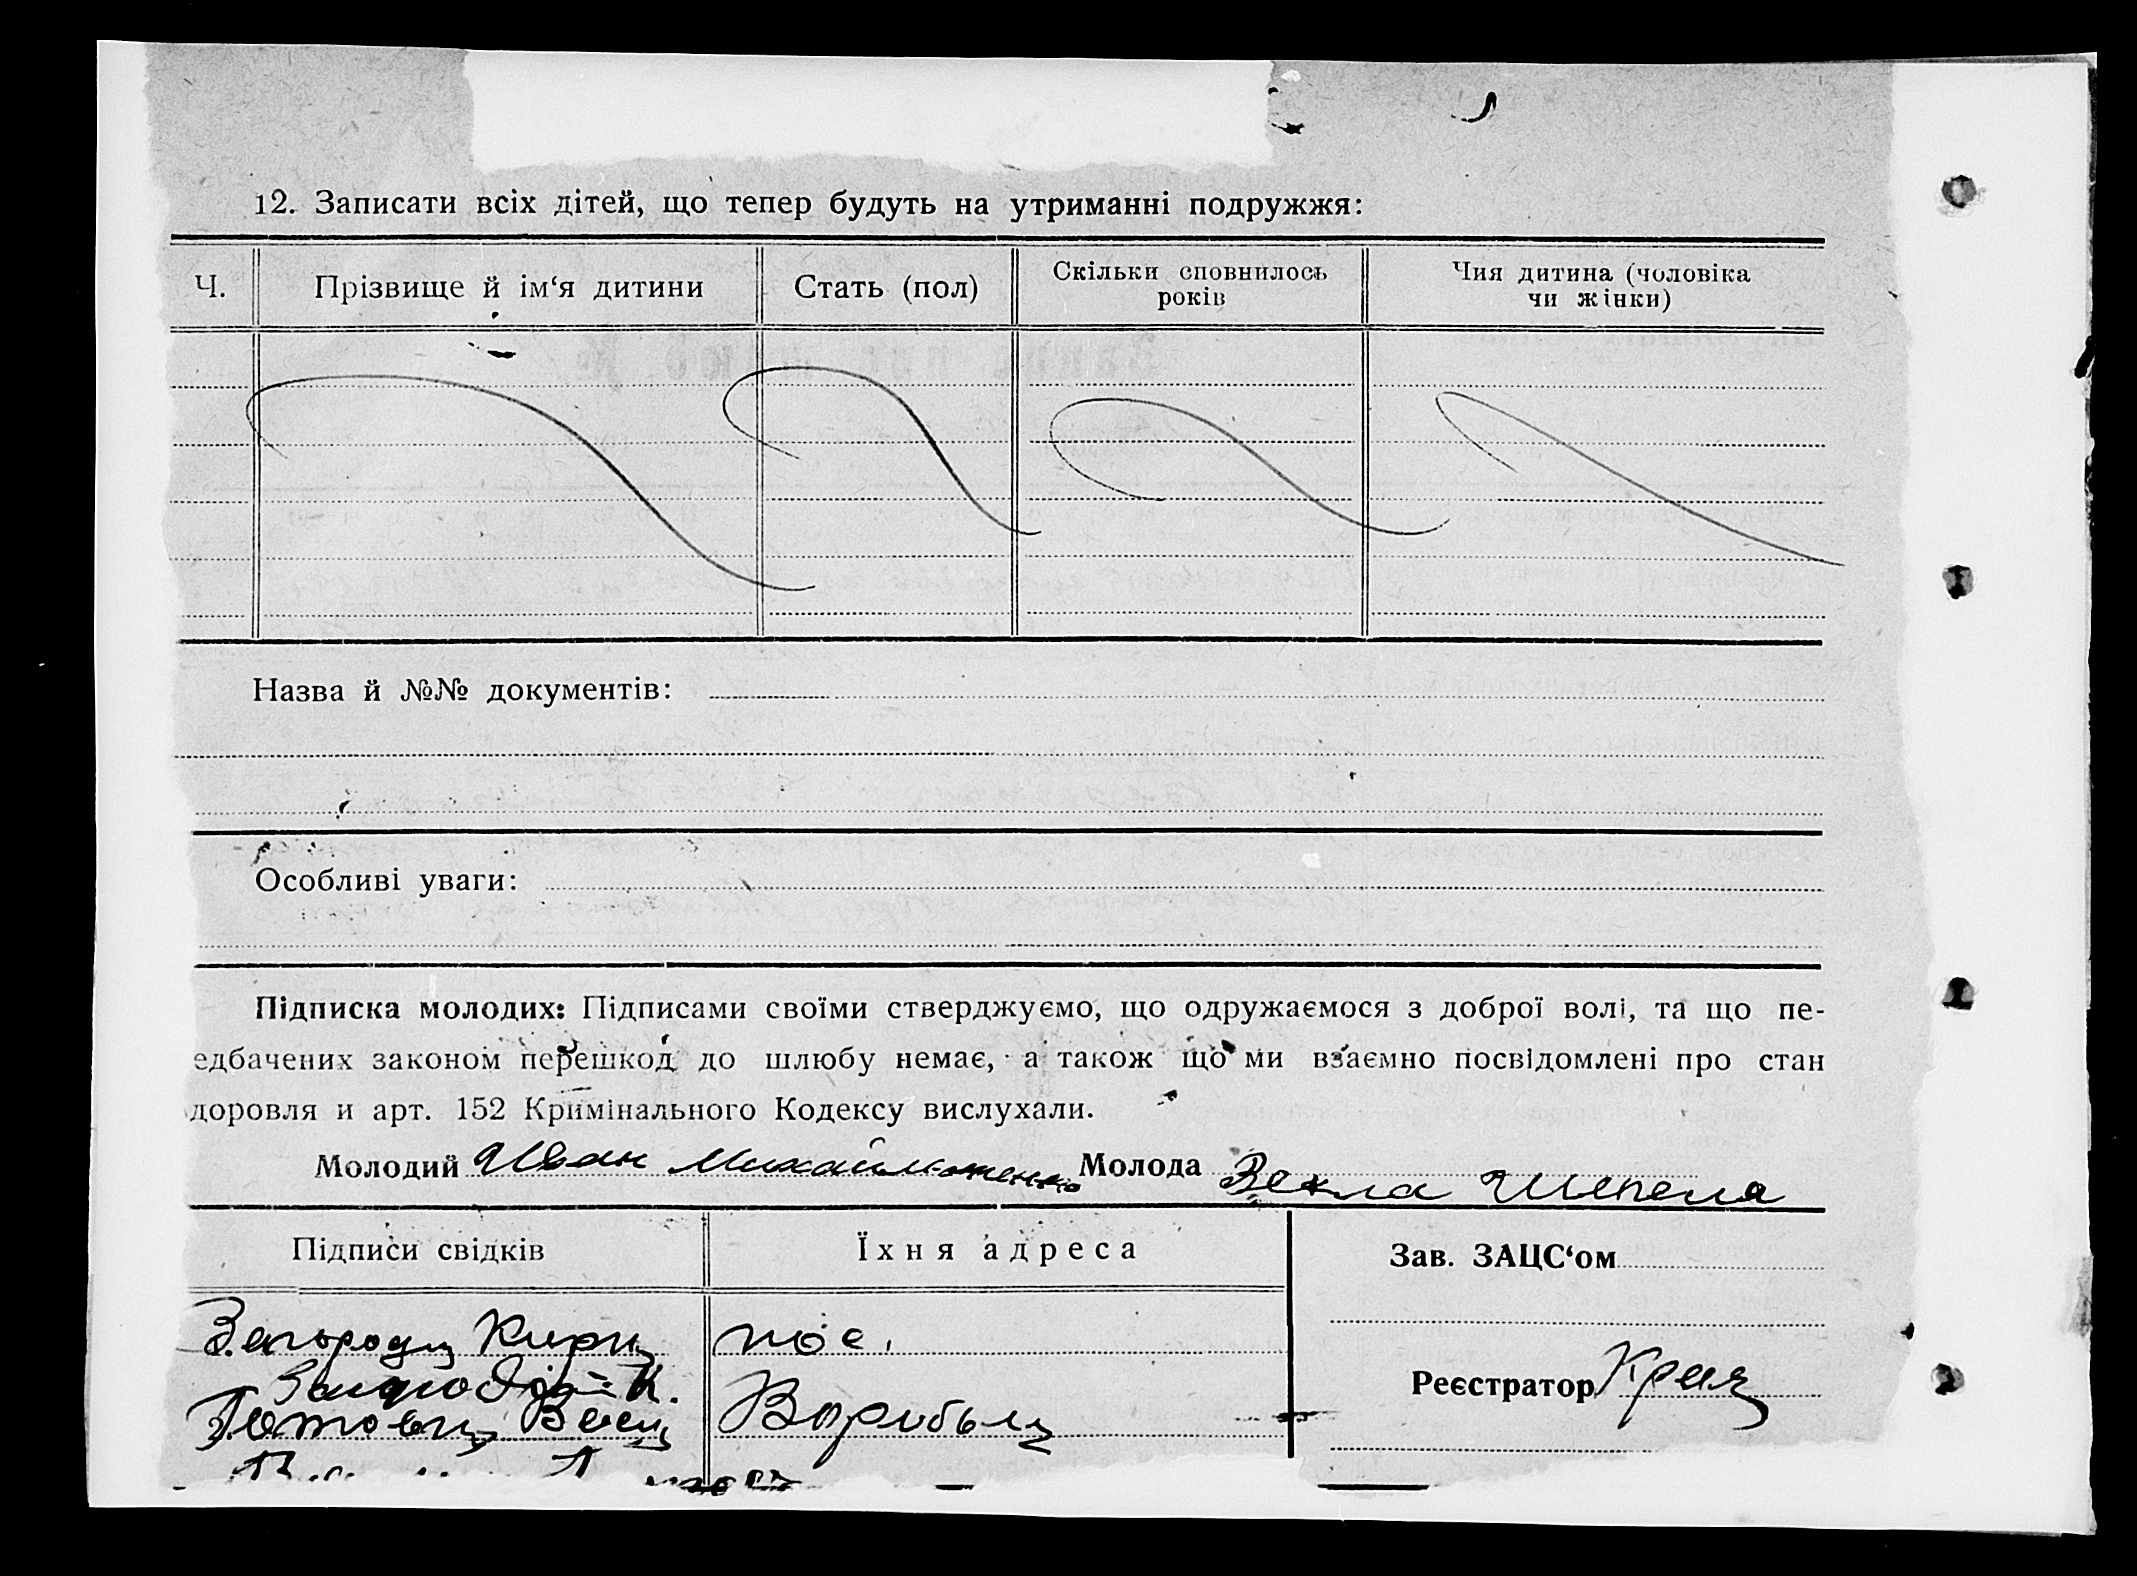 12. Записати всіх дітей, що тепер будуть на утриманні подружжя:
Ч. Прізвище й ім‘я дитини Стать (пол) Скільки сповнилось років Чия дитина (чоловіка чи жінки)
Назва й №№ документів:
Особливі уваги:
Підписка молодих: Підписами своїми стверджуємо, що одружаємося з доброї волі, та що пе-
едбачених законом перешкод до шлюбу немає, а також що ми взаємно посвідомлені про стан
доровля и арт. 152 Кримінального Кодексу вислухали.
Молодий Иван Молода Шепеля
Підписи свідків Їхня адреса Зав. ЗАЦС‘ом
пос.
Реєстратор